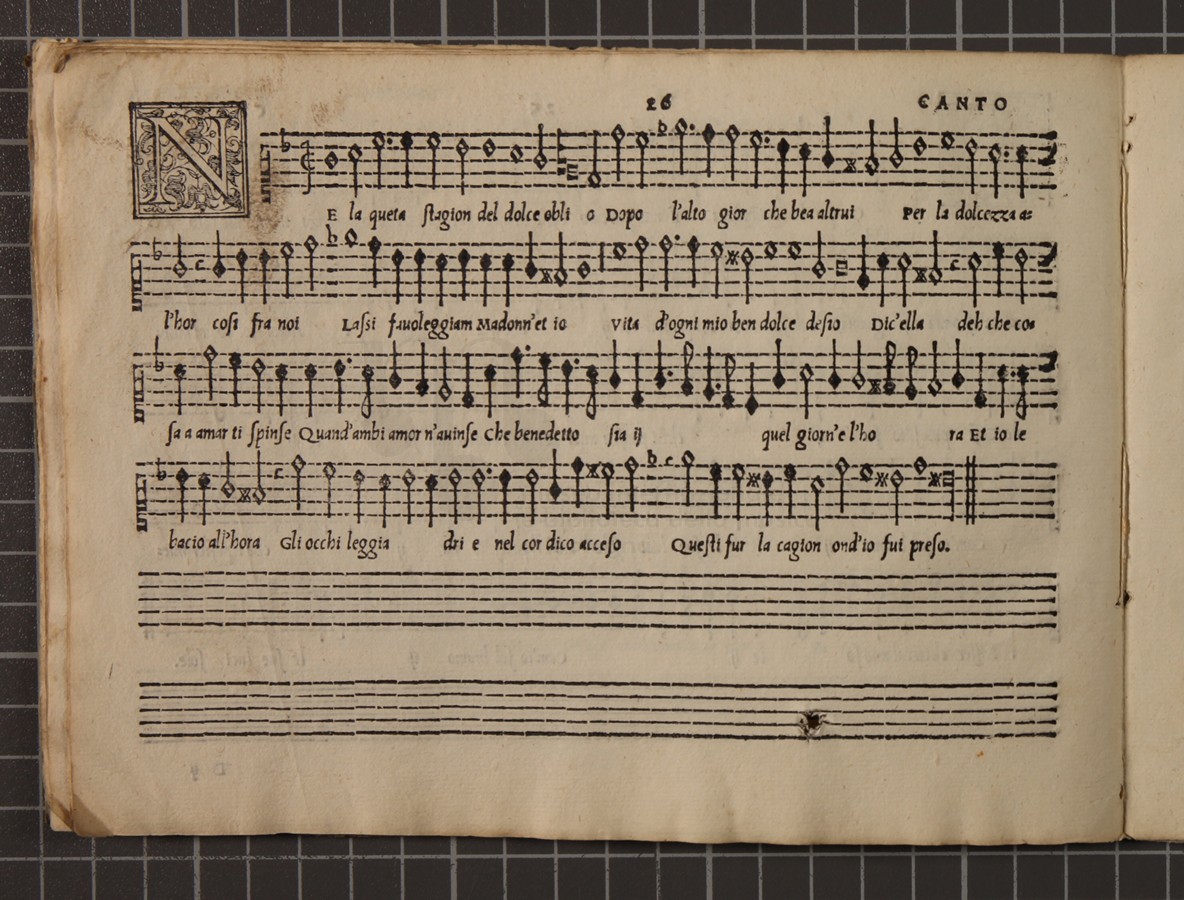 26 CANTO
NE la queta stagion del dolce obli o Dopo l'alto gior che bea altrui Per la dolcezza a=
l'hor cosi fra noi Lassi fauoleggiam Madonn'et io Vita d'ogni mio ben dolce desio Dic'ella deh che co=
sa a amar ti spinse Quand'ambi amor n'auinse Che benedetto sia ij quel giorn'e l'ho ra Et io le
bacio all'hora Gli occhi leggia dri e nel cor dico acceso Questi fur la cagion ond'io fui preso.